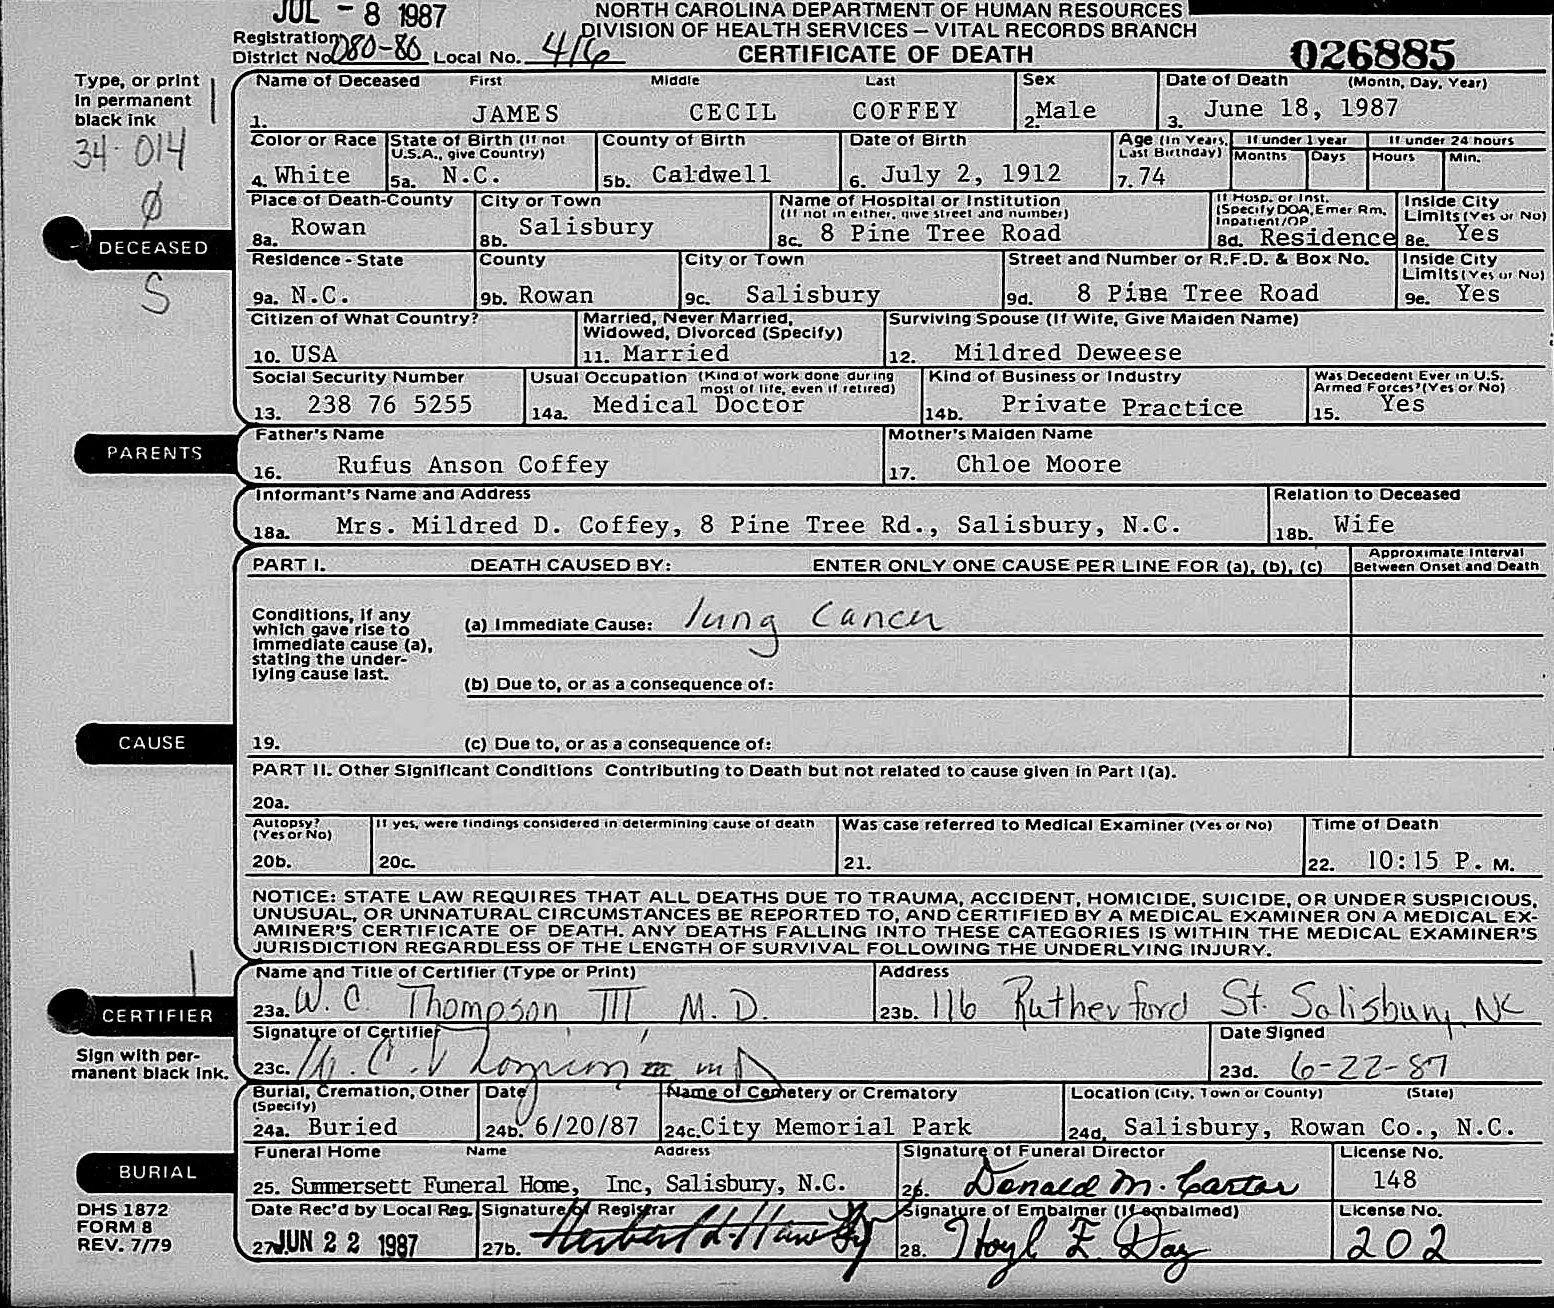 JUL - 8 1987
NORTH CAROLINA DEPARTMENT OF HUMAN RESOURCES
DIVISION OF HEALTH SERVICES – VITAL RECORDS BRANCH
CERTIFICATE OF DEATH
026885
Registration District No. 080-80 Local No. 416
Type, or print in permanent black ink
34-014
Ø
DECEASED
S
Name of Deceased First Middle Last Sex Date of Death (Month, Day, Year)
1. JAMES CECIL COFFEY 2. Male 3. June 18, 1987
Color or Race State of Birth (If not U.S.A., give Country) County of Birth Date of Birth Age (In Years, Last Birthday) If under 1 year Months Days If under 24 hours Hours Min.
4. White 5a. N.C. 5b. Caldwell 6. July 2, 1912 7. 74
Place of Death-County City or Town Name of Hospital or Institution (If not in either, give street and number) If Hosp. or Inst. (Specify DOA, Emer Rm, Inpatient/OP Inside City Limits (Yes or No)
8a. Rowan 8b. Salisbury 8c. 8 Pine Tree Road 8d. Residence 8e. Yes
Residence - State County City or Town Street and Number or R.F.D. & Box No. Inside City Limits (Yes or No)
9a. N.C. 9b. Rowan 9c. Salisbury 9d. 8 Pine Tree Road 9e. Yes
Citizen of What Country? Married, Never Married, Widowed, Divorced (Specify) Surviving Spouse (If Wife, Give Maiden Name)
10. USA 11. Married 12. Mildred Deweese
Social Security Number Usual Occupation (Kind of work done during most of life, even if retired) Kind of Business or Industry Was Decedent Ever in U.S. Armed Forces? (Yes or No)
13. 238 76 5255 14a. Medical Doctor 14b. Private Practice 15. Yes
PARENTS
Father's Name Mother's Maiden Name
16. Rufus Anson Coffey 17. Chloe Moore
Informant's Name and Address Relation to Deceased
18a. Mrs. Mildred D. Coffey, 8 Pine Tree Rd., Salisbury, N.C. 18b. Wife
PART I. DEATH CAUSED BY: ENTER ONLY ONE CAUSE PER LINE FOR (a), (b), (c) Approximate Interval Between Onset and Death
Conditions, if any which gave rise to immediate cause (a), stating the underlying cause last.
(a) Immediate Cause: lung cancer
(b) Due to, or as a consequence of:
CAUSE
19. (c) Due to, or as a consequence of:
PART II. Other Significant Conditions Contributing to Death but not related to cause given in Part I(a).
20a.
Autopsy? (Yes or No) If yes, were findings considered in determining cause of death Was case referred to Medical Examiner (Yes or No) Time of Death
20b. 20c. 21. 22. 10:15 P. M.
NOTICE: STATE LAW REQUIRES THAT ALL DEATHS DUE TO TRAUMA, ACCIDENT, HOMICIDE, SUICIDE, OR UNDER SUSPICIOUS,
UNUSUAL, OR UNNATURAL CIRCUMSTANCES BE REPORTED TO, AND CERTIFIED BY A MEDICAL EXAMINER ON A MEDICAL EX-
AMINER'S CERTIFICATE OF DEATH. ANY DEATHS FALLING INTO THESE CATEGORIES IS WITHIN THE MEDICAL EXAMINER'S
JURISDICTION REGARDLESS OF THE LENGTH OF SURVIVAL FOLLOWING THE UNDERLYING INJURY.
CERTIFIER
Name and Title of Certifier (Type or Print) Address
23a. W. C. Thompson III M.D. 23b. 116 Rutherford St. Salisbury, NC
Sign with permanent black ink.
Signature of Certifier Date Signed
23c. W. C. Thompson III MD 23d. 6-22-87
Burial, Cremation, Other (Specify) Date Name of Cemetery or Crematory Location (City, Town or County) (State)
24a. Buried 24b. 6/20/87 24c. City Memorial Park 24d. Salisbury, Rowan Co., N.C.
BURIAL
Funeral Home Name Address Signature of Funeral Director License No.
25. Summersett Funeral Home, Inc, Salisbury, N.C. 26. Donald M. Carter 148
DHS 1872
FORM 8
REV. 7/79
Date Rec'd by Local Reg. Signature of Registrar Signature of Embalmer (If embalmed) License No.
27a. JUN 22 1987 27b. Herbert L. 28. Hoyl E. Day 202